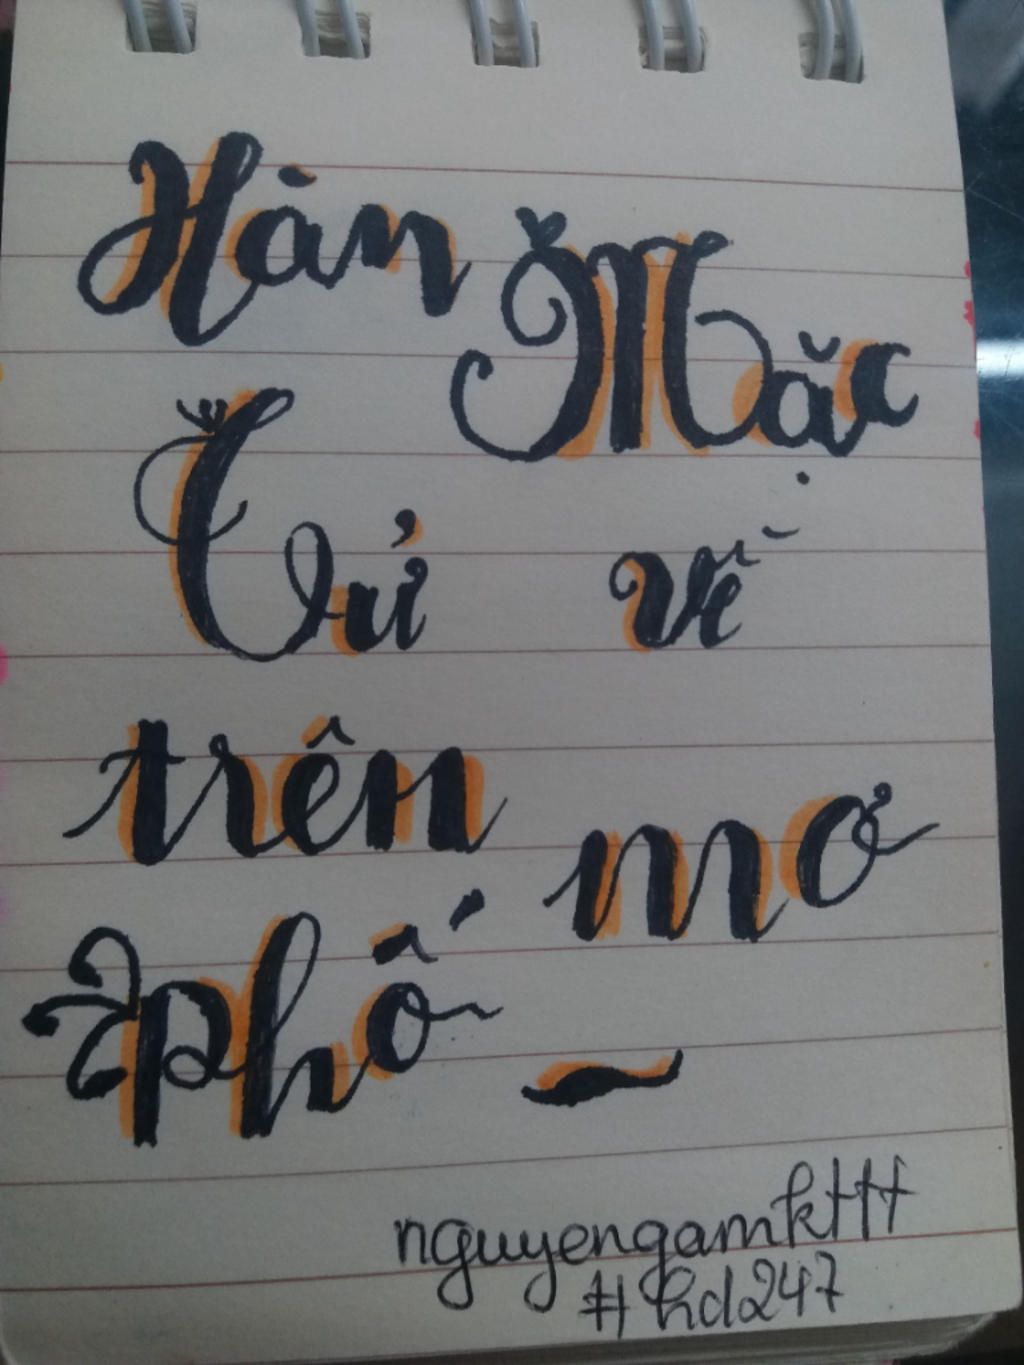 Hàn Mặc
Tử về
trên mơ
phố ~
nguyengamkHH
#hd247